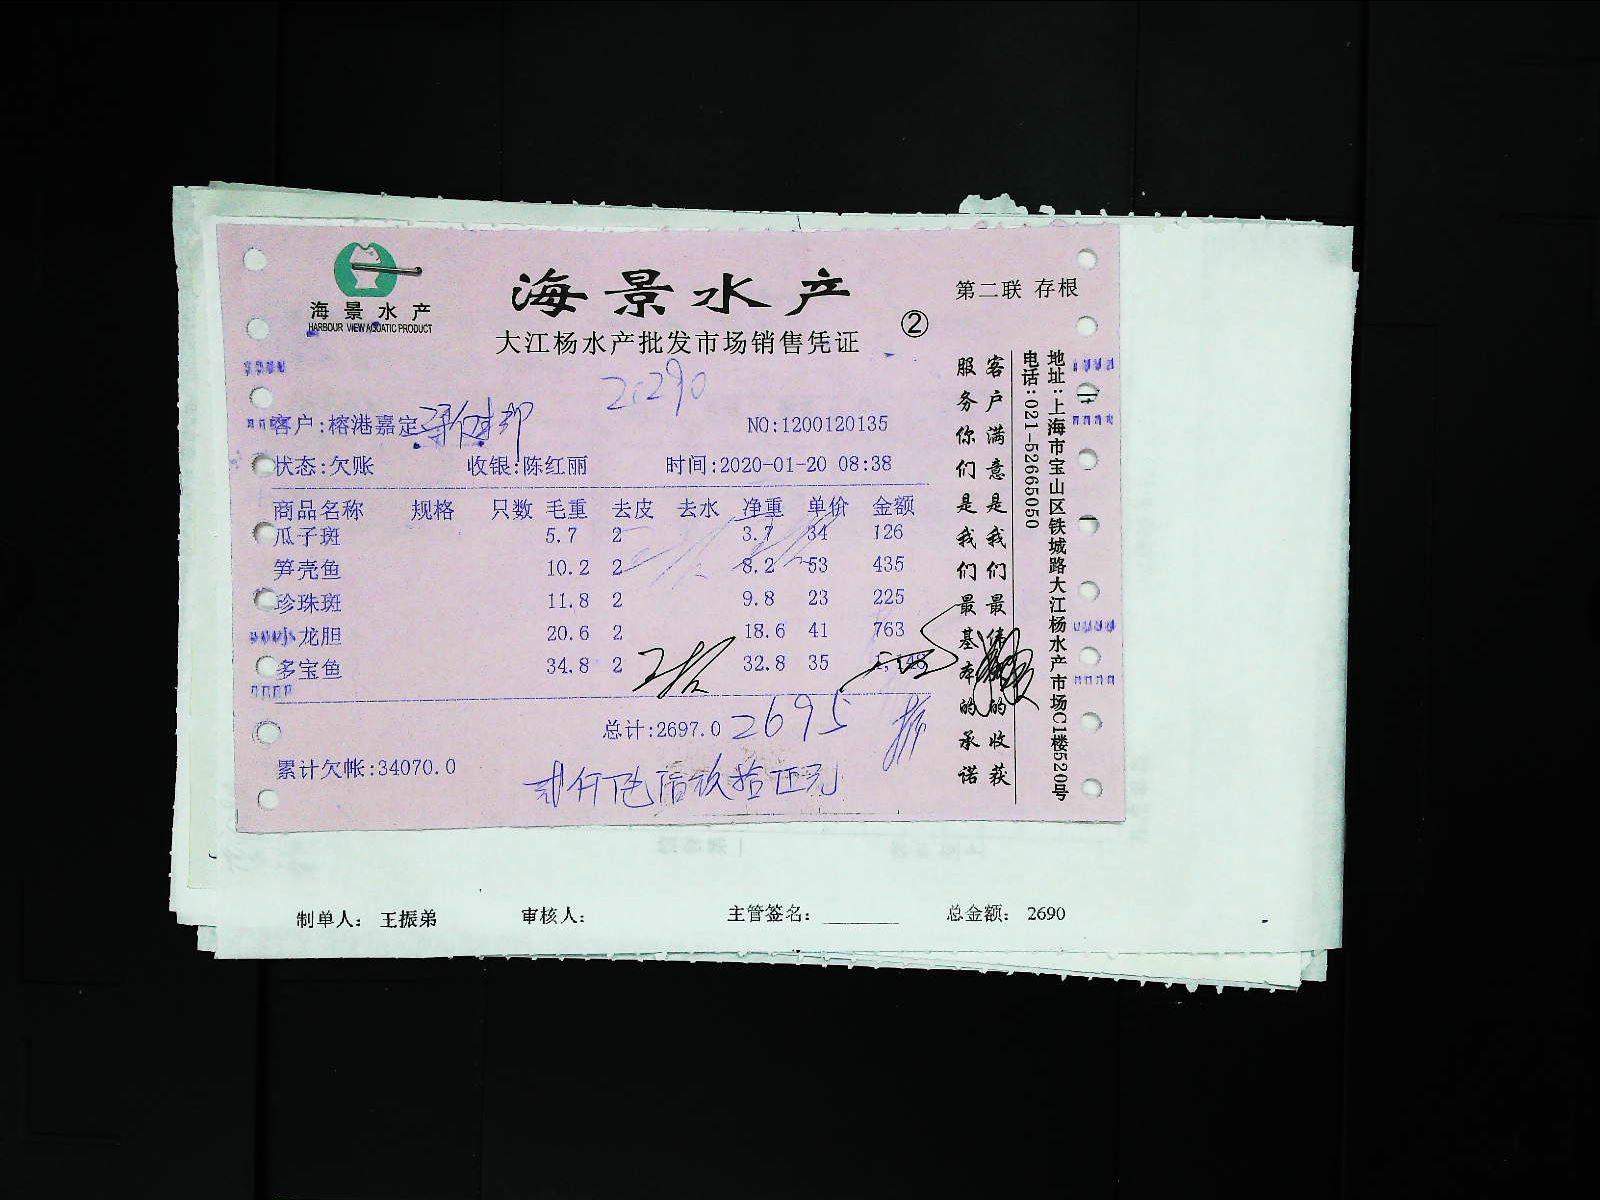 海景水产
HARBOUR VIEW AQUATIC PRODUCT
海景水产
大江杨水产批发市场销售凭证
②
第二联 存根
客户:榕港嘉定
NO:1200120135
状态:欠账 收银:陈红丽 时间:2020-01-20 08:38
商品名称 规格 只数 毛重 去皮 去水 净重 单价 金额
瓜子斑 5.7 2 3.7 34 126
笋壳鱼 10.2 2 8.2 53 435
珍珠斑 11.8 2 9.8 23 225
小龙胆 20.6 2 18.6 41 763
多宝鱼 34.8 2 32.8 35
总计:2697.0 2695
累计欠帐:34070.0
客户满意是我们最 的收获
服务你们是我们最基本的承诺
地址:上海市宝山区铁城路大江杨水产市场C1楼520号
电话:021-52665050
制单人: 王振弟 审核人: 主管签名: 总金额: 2690